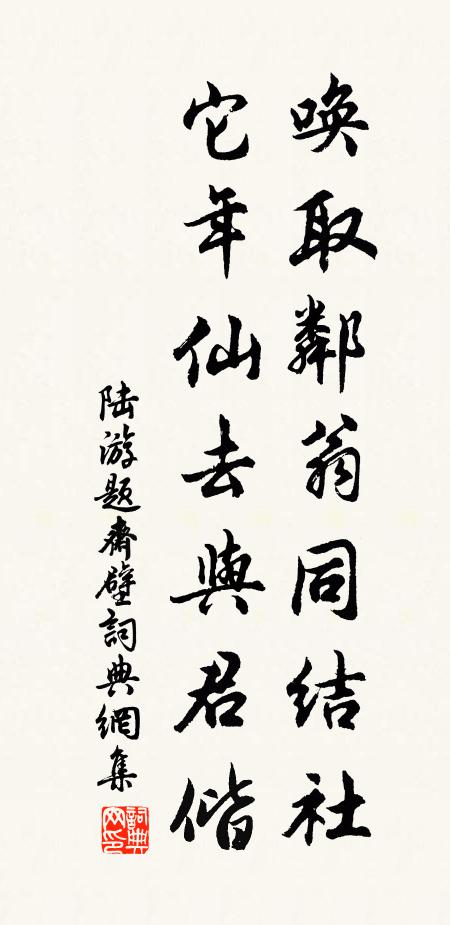 唤取鄰翁同结社
它年仙去與君偕
陆游题齋壁詞典網集
詞典网印